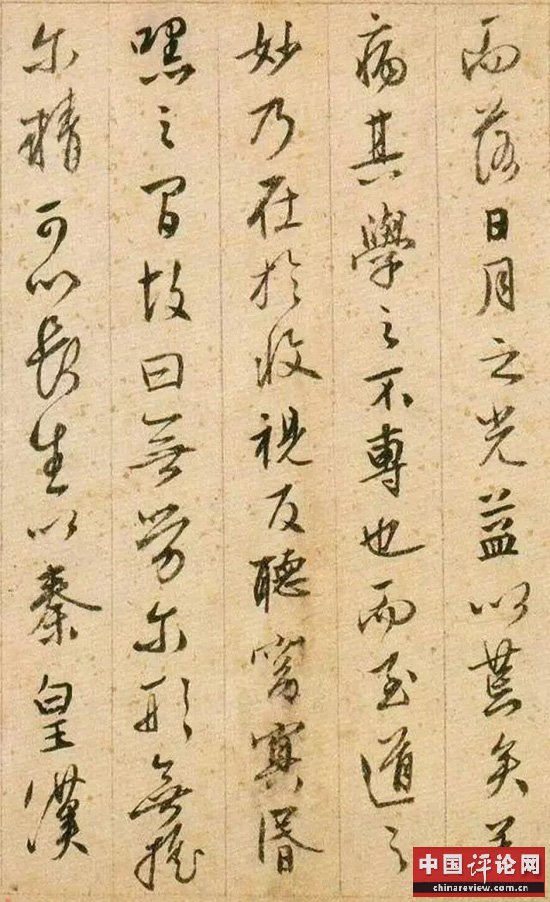 而落日月之光益以荒矣
病其學之不專也而至道之
妙乃在於收視反聽窈冥昏
嘿之間故曰無勞尔形無搖
尔精可以長生以秦皇漢
中国评论网
chinareview.com.cn